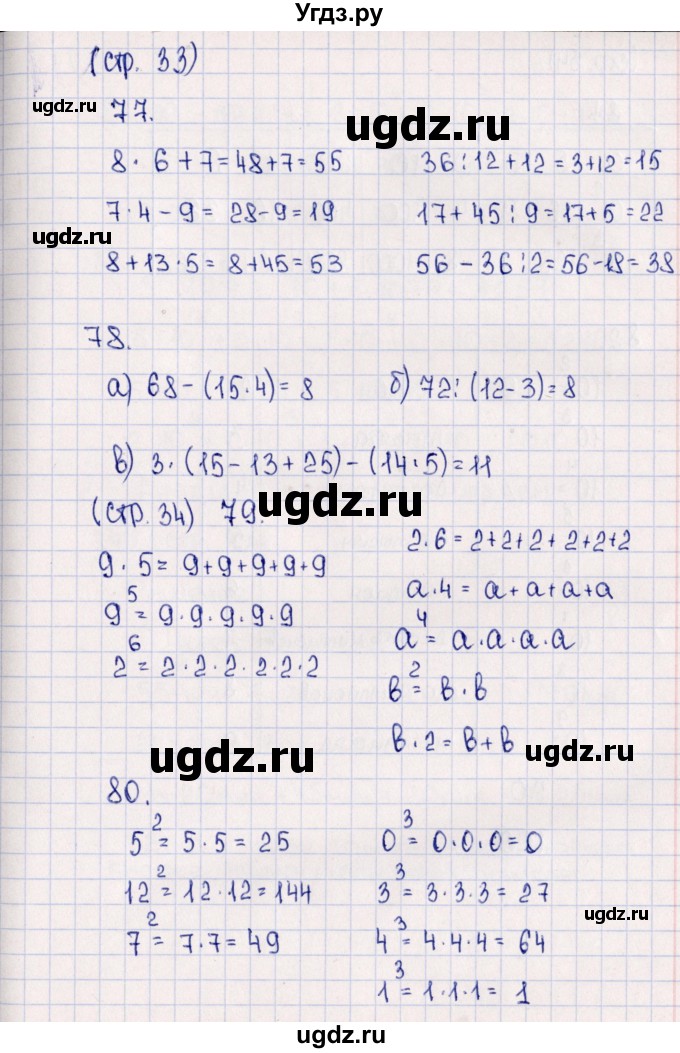 Угдз.ру
(стр. 33)
ugdz.ru
77.
ugdz.ru
8 · 6 + 7 = 48 + 7 = 55
36 : 12 + 12 = 3 + 12 = 15
7 · 4 - 9 = 28 - 9 = 19
17 + 45 : 9 = 17 + 5 = 22
ugdz.ru
8 + 13 · 5 = 8 + 45 = 53
56 - 36 : 2 = 56 - 18 = 38
78.
а) 68 - (15 · 4) = 8
б) 72 : (12 - 3) = 8
в) 3 · (15 - 13 + 25) - (14 · 5) = 11
(стр. 34) 79.
ugdz.ru
9 · 5 = 9 + 9 + 9 + 9 + 9
2 · 6 = 2 + 2 + 2 + 2 + 2 + 2
9⁵ = 9 · 9 · 9 · 9 · 9
a · 4 = a + a + a + a
2⁶ = 2 · 2 · 2 · 2 · 2 · 2
a⁴ = a · a · a · a
в² = в · в
в · 2 = в + в
ugdz.ru
ugdz.ru
80.
5² = 5 · 5 = 25
0³ = 0 · 0 · 0 = 0
12² = 12 · 12 = 144
3³ = 3 · 3 · 3 = 27
ugdz.ru
7² = 7 · 7 = 49
4³ = 4 · 4 · 4 = 64
1³ = 1 · 1 · 1 = 1
ugdz.ru